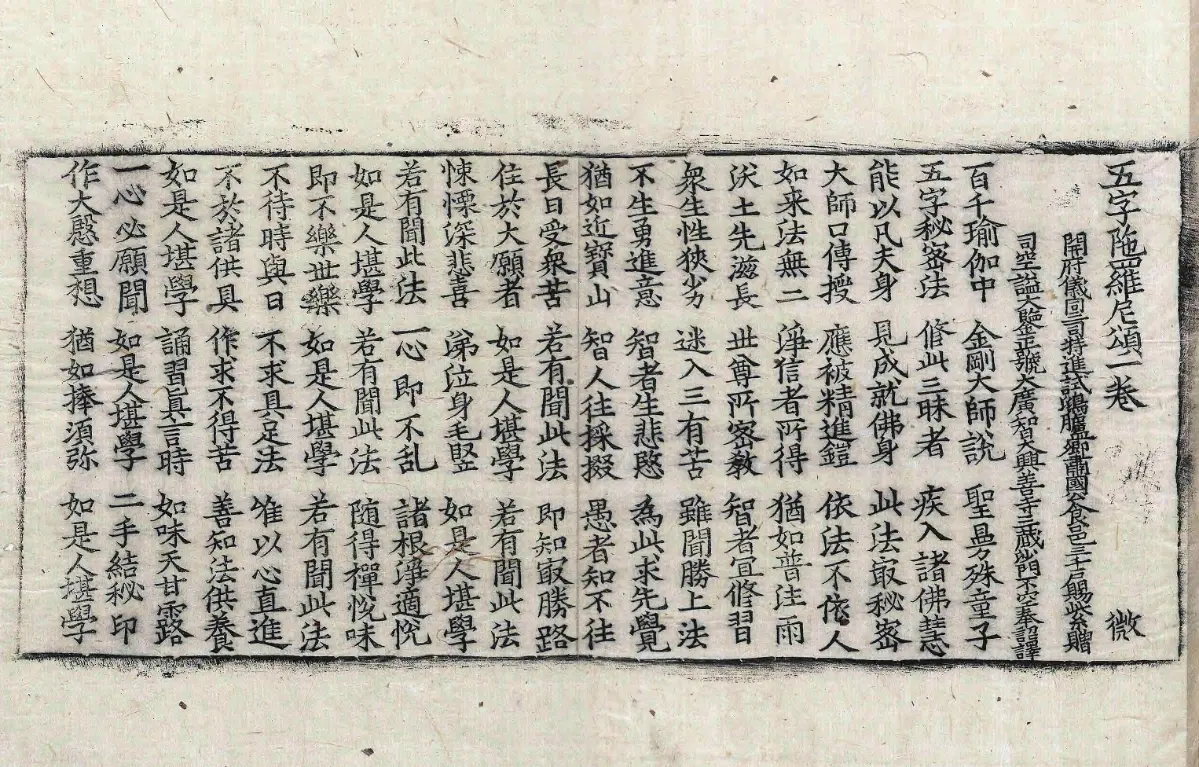 五字陁羅尼頌一卷 微
開府儀同三司特進試鴻臚卿肅國公食邑三千戶賜紫贈
司空謚大鑒正號大廣智大興善寺三藏沙門不空奉詔譯
百千瑜伽中 金剛大師說 聖曼殊童子
五字秘密法 修此三昧者 疾入諸佛慧
能以凡夫身 見成就佛身 此法㝡秘密
大師口傳授 應被精進鎧 依法不依人
如来法無二 淨信者所得 猶如普注雨
沃土先滋長 世尊所密教 智者宜修習
衆生性狹劣 迷入三有苦 雖聞勝上法
不生勇進意 智者生悲愍 為此求先覺
猶如近寶山 智人往採掇 愚者知不往
長日受衆苦 若有聞此法 即知㝡勝路
住於大願者 如是人堪學 若有聞此法
悚慄深悲喜 涕泣身毛竪 如是人堪學
若有聞此法 一心即不乱 諸根淨適悅
如是人堪學 若有聞此法 随得禪悅味
即不樂世樂 如是人堪學 若有聞此法
不待時與日 不求具足法 唯以心直進
不於諸供具 作求不得苦 善知法供養
如是人堪學 誦習真言時 如味天甘露
一心必願聞 如是人堪學 二手結秘印
作大慇重想 猶如捧須弥 如是人堪學